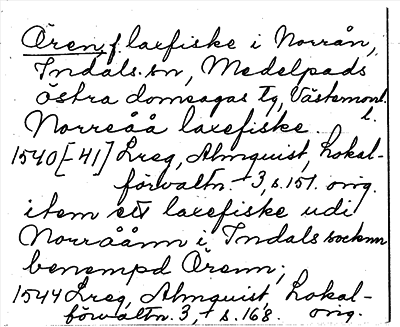 Ören, f. laxfiske i Norrån,
Indals sn, Medelpads
östra domsagas tg, Västernorrl.
l.
Norreåå laxefiske
1540[-41] Lreg, Almquist, Lokal-
förvaltn. 3, s. 151. orig.
item ett laxefiske udi
Norråånn i Indals socknn
benempd Örenn;
1544 Lreg, Almquist, Lokal-
förvaltn. 3, s. 168. orig.